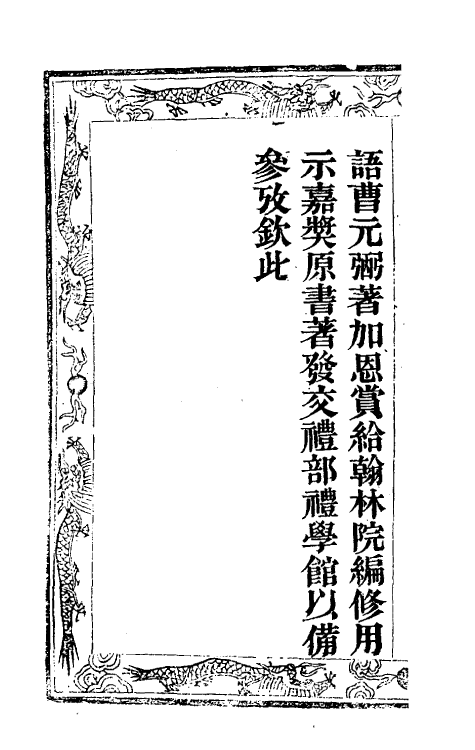 語曹元弼著加恩賞給翰林院編修用
示嘉獎原書著發交禮部禮學館以備
參攷欽此